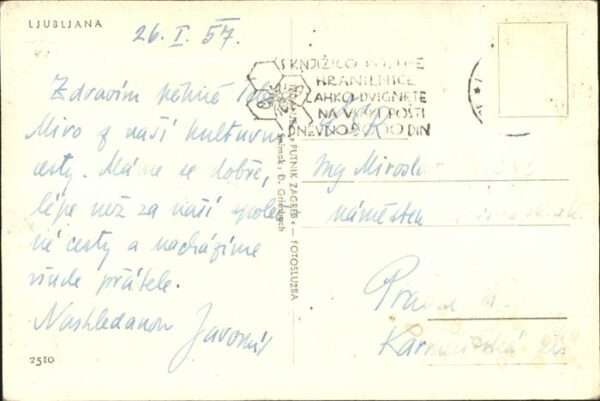 LJUBLJANA
26. I. 57.
Zdravím pěkně
Miro z naší kulturní
cesty. Máme se dobře,
lépe než za naší společ
né cesty a nacházíme
všude přátele.
Nashledanou Jaromír
2510
S KNJIŽICO
HRANILNICE
LAHKO DVIGNETE
NA VSAKI POŠTI
DNEVNO
DIN
PUTNIK ZAGREB — FOTOSLUŽBA
Snimak: D. Griesbach
Ing Miroslav
náměstek
Praha